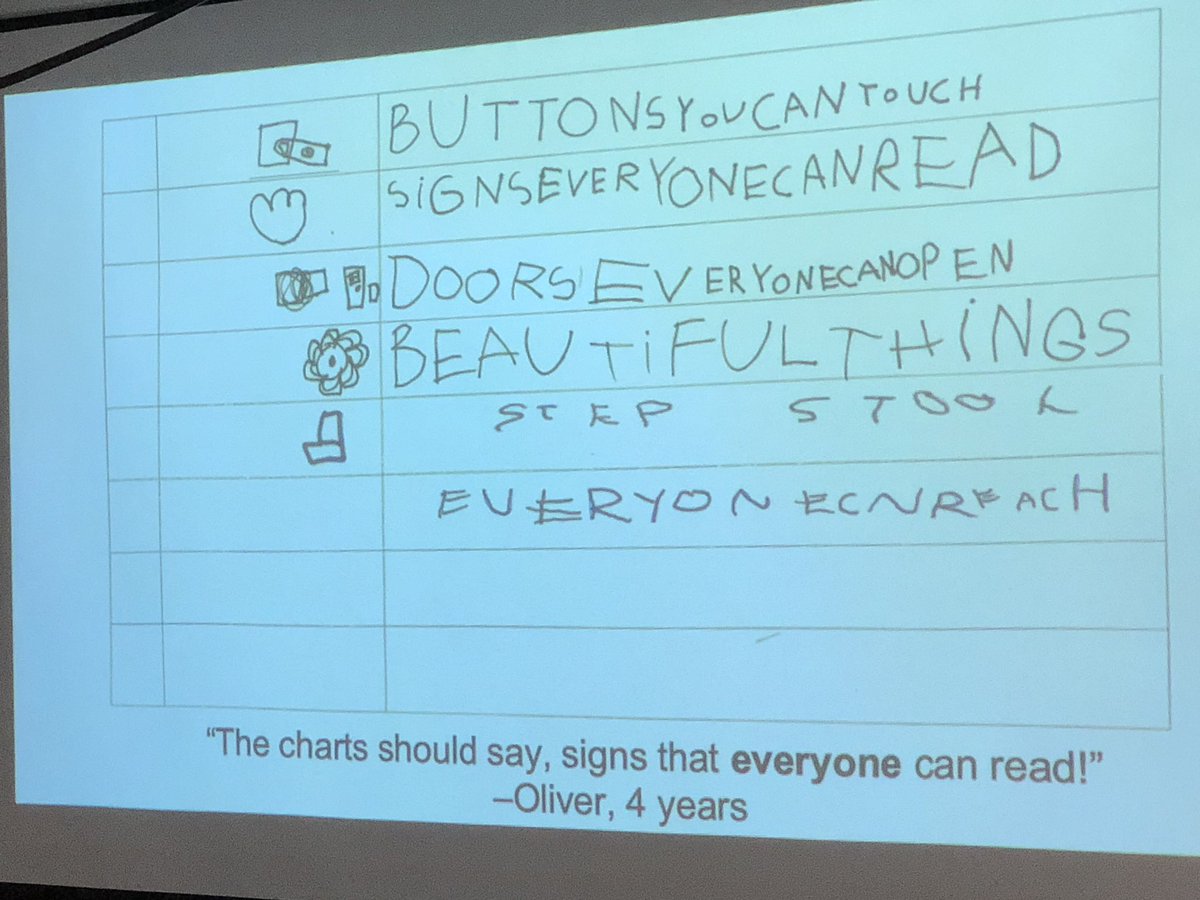 BUTTONSYoUCANTOUCH
SiGNSEVERYONECANREAD
DOORSEVERYONECANOPEN
BEAUTiFULTHiNGS
STEP STOOL
EVERYONECNREACH
“The charts should say, signs that everyone can read!”
–Oliver, 4 years